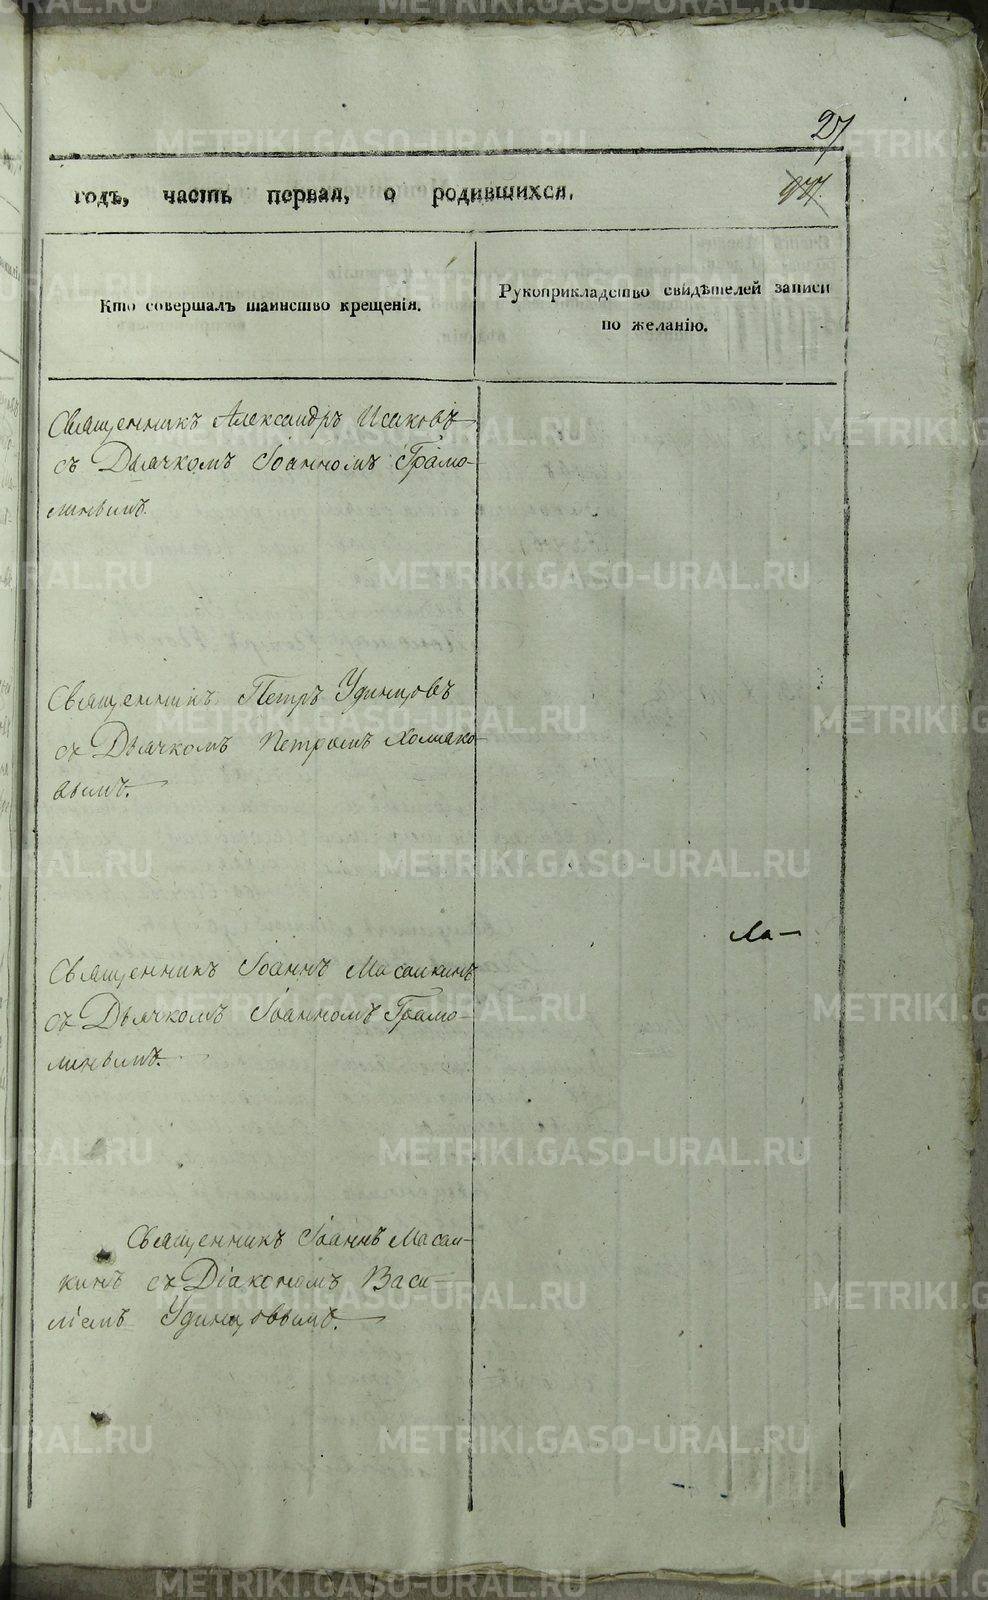 27
годъ, часть первая, о родившихся.
977.
Кто совершалъ таинство крещенія.
Рукоприкладство свидѣтелей записи
по желанію.
Священникъ Александръ Исаковъ
съ Дьячкомъ Іоанномъ Грамо-
линымъ.
Священникъ Петръ Удинцовъ
съ Дьячкомъ Петромъ Холмако-
вымъ.
Ла-
Священникъ Іоаннъ Масалкинъ
съ Дьячкомъ Іоанномъ Грамо-
линымъ.
Священникъ Іоаннъ Масал-
кинъ съ Діакономъ Васи-
ліемъ Удинцовымъ.
METRIKI.GASO-URAL.RU